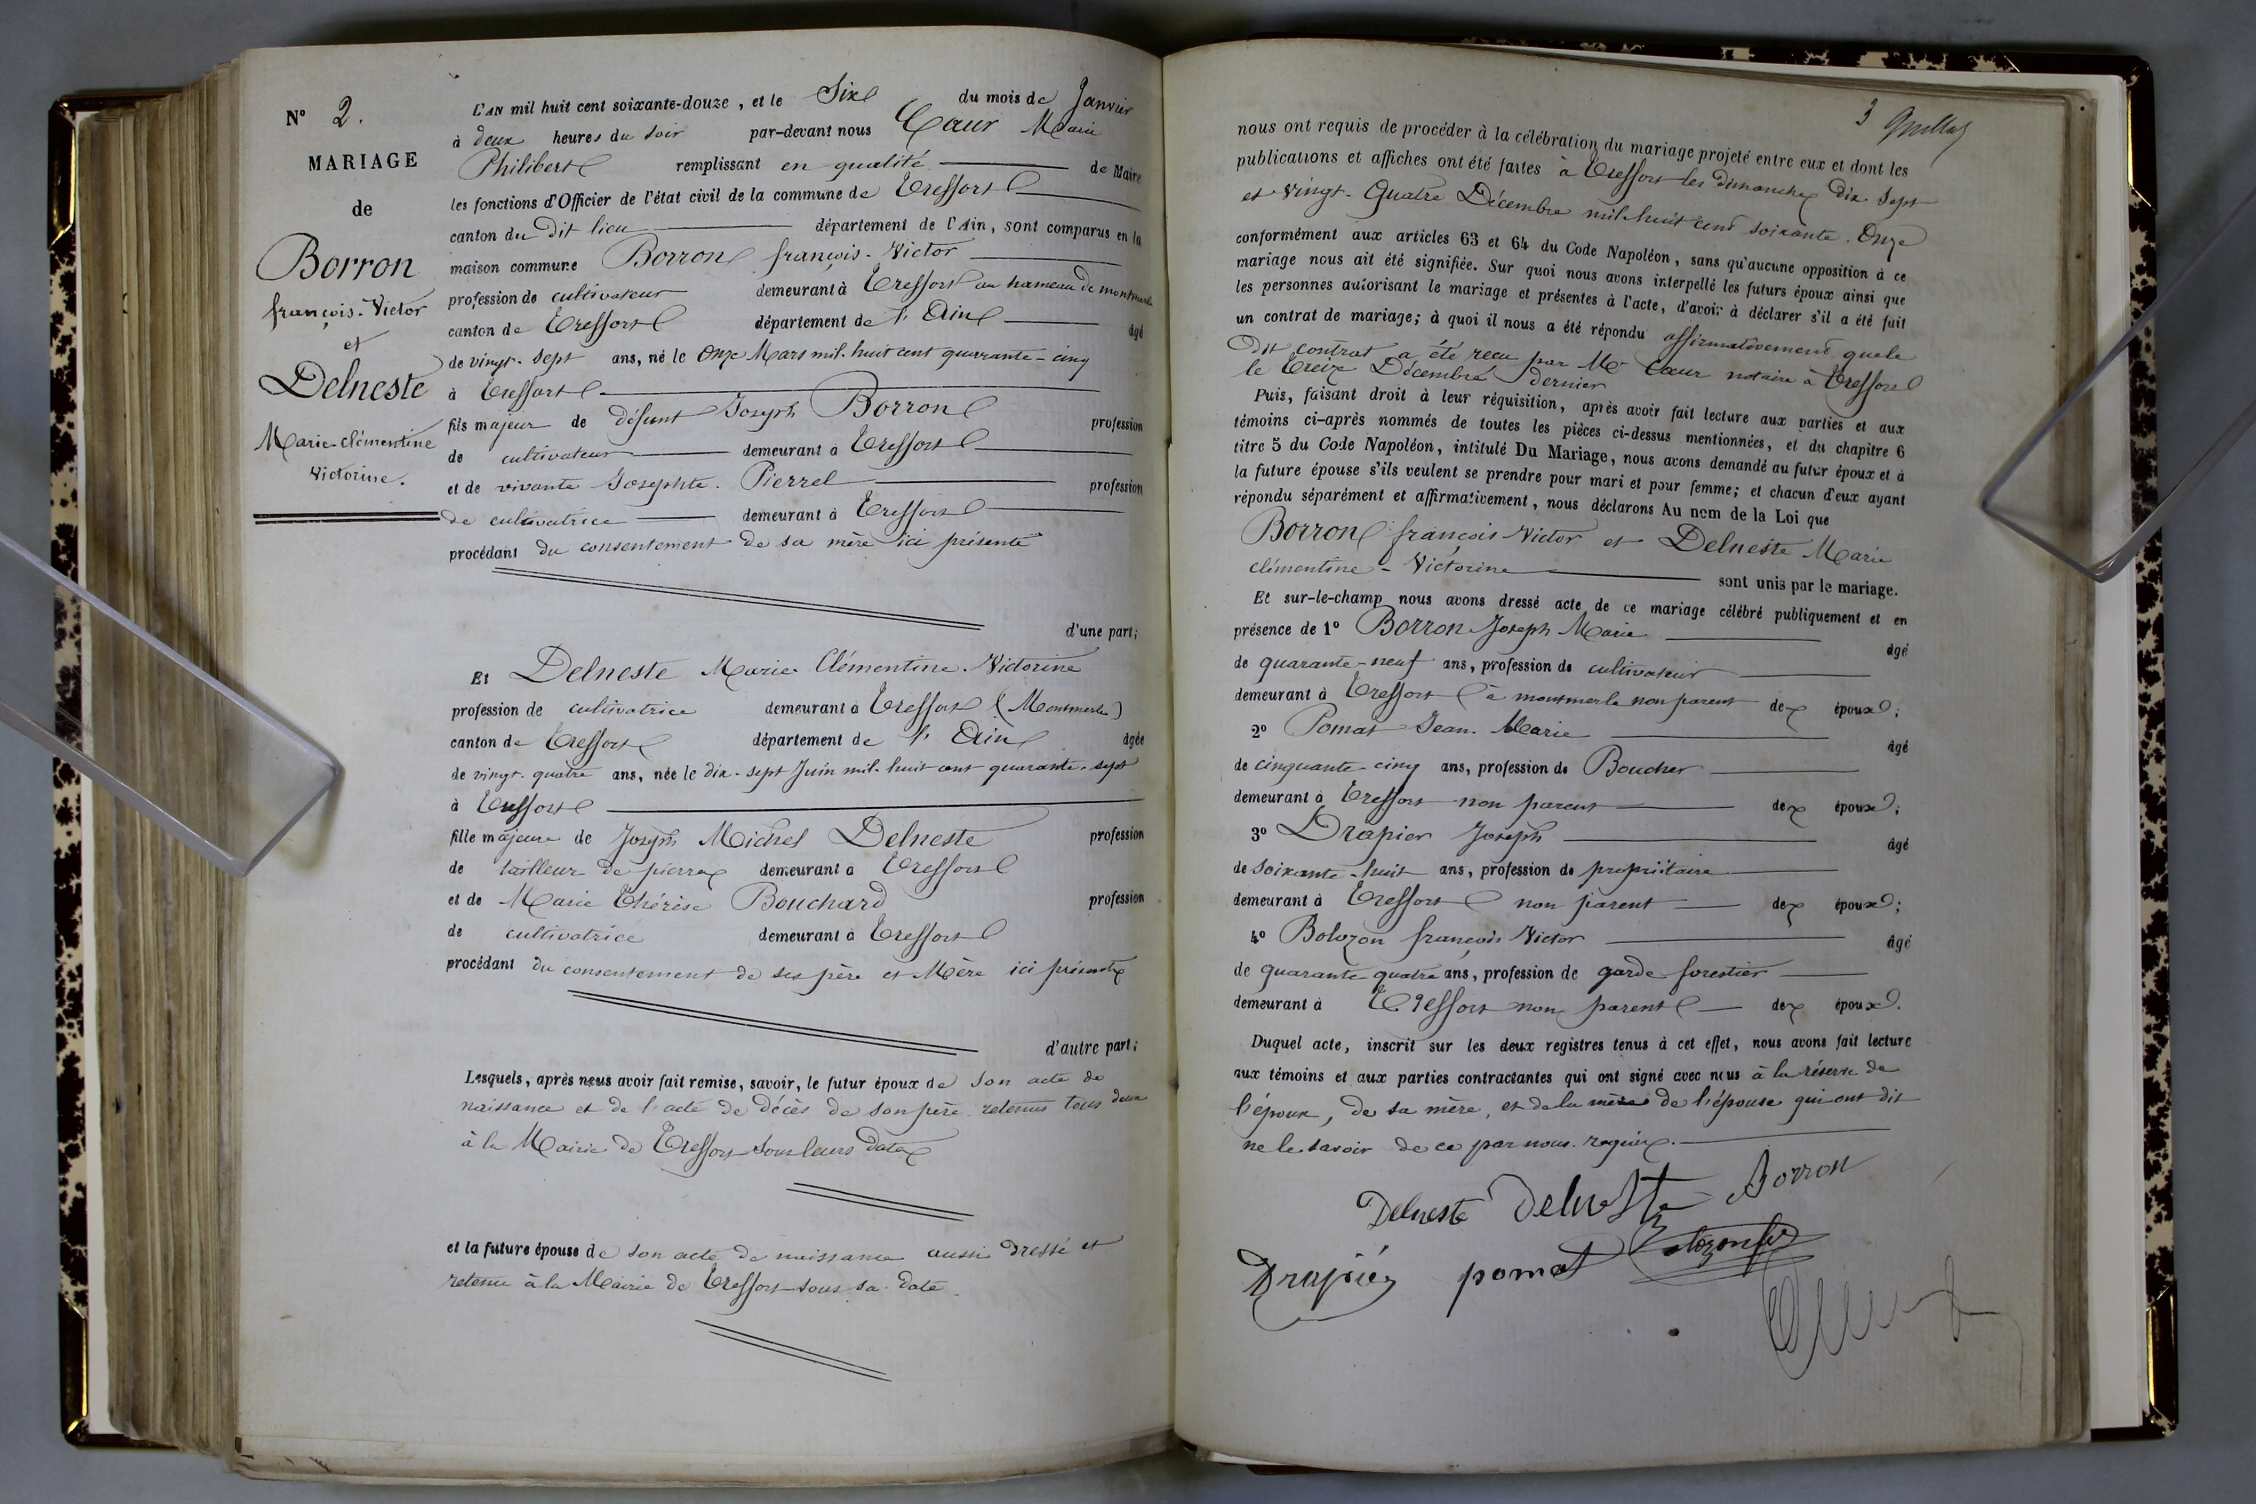 N° 2.
MARIAGE
de
Borron
françois-Victor
et
Delneste
Marie-clémentine
Victorine.
L'AN mil huit cent soixante-douze, et le Six du mois de Janvier
à deux heures du soir par-devant nous Cœur Marie
Philibert remplissant en qualité de Maire
les fonctions d'Officier de l'état civil de la commune de Treffort
canton du dit lieu département de l'Ain, sont comparus en la
maison commune Borron françois-Victor
profession de cultivateur demeurant à Treffort au hameau de montmerle
canton de Treffort département de l'Ain âgé
de vingt-sept ans, né le Onze Mars mil-huit cent quarante-cinq
à Treffort
fils majeur de défunt Joseph Borron profession
de cultivateur demeurant à Treffort
et de vivante Josephte Pierrel profession
de cultivatrice demeurant à Treffort
procédant du consentement de sa mère ici présente
d'une part;
Et Delneste Marie Clémentine-Victorine
profession de cultivatrice demeurant à Treffort (Montmerle)
canton de Treffort département de l'Ain âgée
de vingt-quatre ans, née le dix-sept Juin mil-huit cent quarante-sept
à Treffort
fille majeure de Joseph Michel Delneste profession
de tailleur de pierres demeurant à Treffort
et de Marie Thérèse Bouchard profession
de cultivatrice demeurant à Treffort
procédant du consentement de ses père et Mère ici présents
d'autre part;
Lesquels, après nous avoir fait remise, savoir, le futur époux de son acte de
naissance et de l'acte de décès de son père retenus tous deux
à la Mairie de Treffort sous leurs dates
et la future épouse de son acte de naissance aussi dressé et
retenu à la Mairie de Treffort sous sa date.
3
nous ont requis de procéder à la célébration du mariage projeté entre eux et dont les
publications et affiches ont été faites à Treffort les dimanches dix sept
et vingt-Quatre Décembre mil-huit cent soixante-Onze
conformément aux articles 63 et 64 du Code Napoléon, sans qu'aucune opposition à ce
mariage nous ait été signifiée. Sur quoi nous avons interpellé les futurs époux ainsi que
les personnes autorisant le mariage et présentes à l'acte, d'avoir à déclarer s'il a été fait
un contrat de mariage; à quoi il nous a été répondu affirmativement que le
dit contrat a été reçu par Me Cœur notaire à Treffort
le Treize Décembre dernier
Puis, faisant droit à leur réquisition, après avoir fait lecture aux parties et aux
témoins ci-après nommés de toutes les pièces ci-dessus mentionnées, et du chapitre 6
titre 5 du Code Napoléon, intitulé Du Mariage, nous avons demandé au futur époux et à
la future épouse s'ils veulent se prendre pour mari et pour femme; et chacun d'eux ayant
répondu séparément et affirmativement, nous déclarons Au nom de la Loi que
Borron françois Victor et Delneste Marie
clémentine-Victorine sont unis par le mariage.
Et sur-le-champ nous avons dressé acte de ce mariage célébré publiquement et en
présence de 1° Borron Joseph Marie âgé
de quarante-neuf ans, profession de cultivateur
demeurant à Treffort à montmerle non parent des époux;
2° Pomat Jean-Marie âgé
de cinquante-cinq ans, profession de Boucher
demeurant à Treffort non parent des époux;
3° Drapier Joseph âgé
de soixante-huit ans, profession de propriétaire
demeurant à Treffort non parent des époux;
4° Bolozon françois Victor âgé
de quarante-quatre ans, profession de garde-forestier
demeurant à Treffort non parent des époux.
Duquel acte, inscrit sur les deux registres tenus à cet effet, nous avons fait lecture
aux témoins et aux parties contractantes qui ont signé avec nous à la réserve de
l'époux, de sa mère, et de la mère de l'épouse qui ont dit
ne le savoir de ce par nous requis.
Delneste Delneste Borron
Drapier pomat